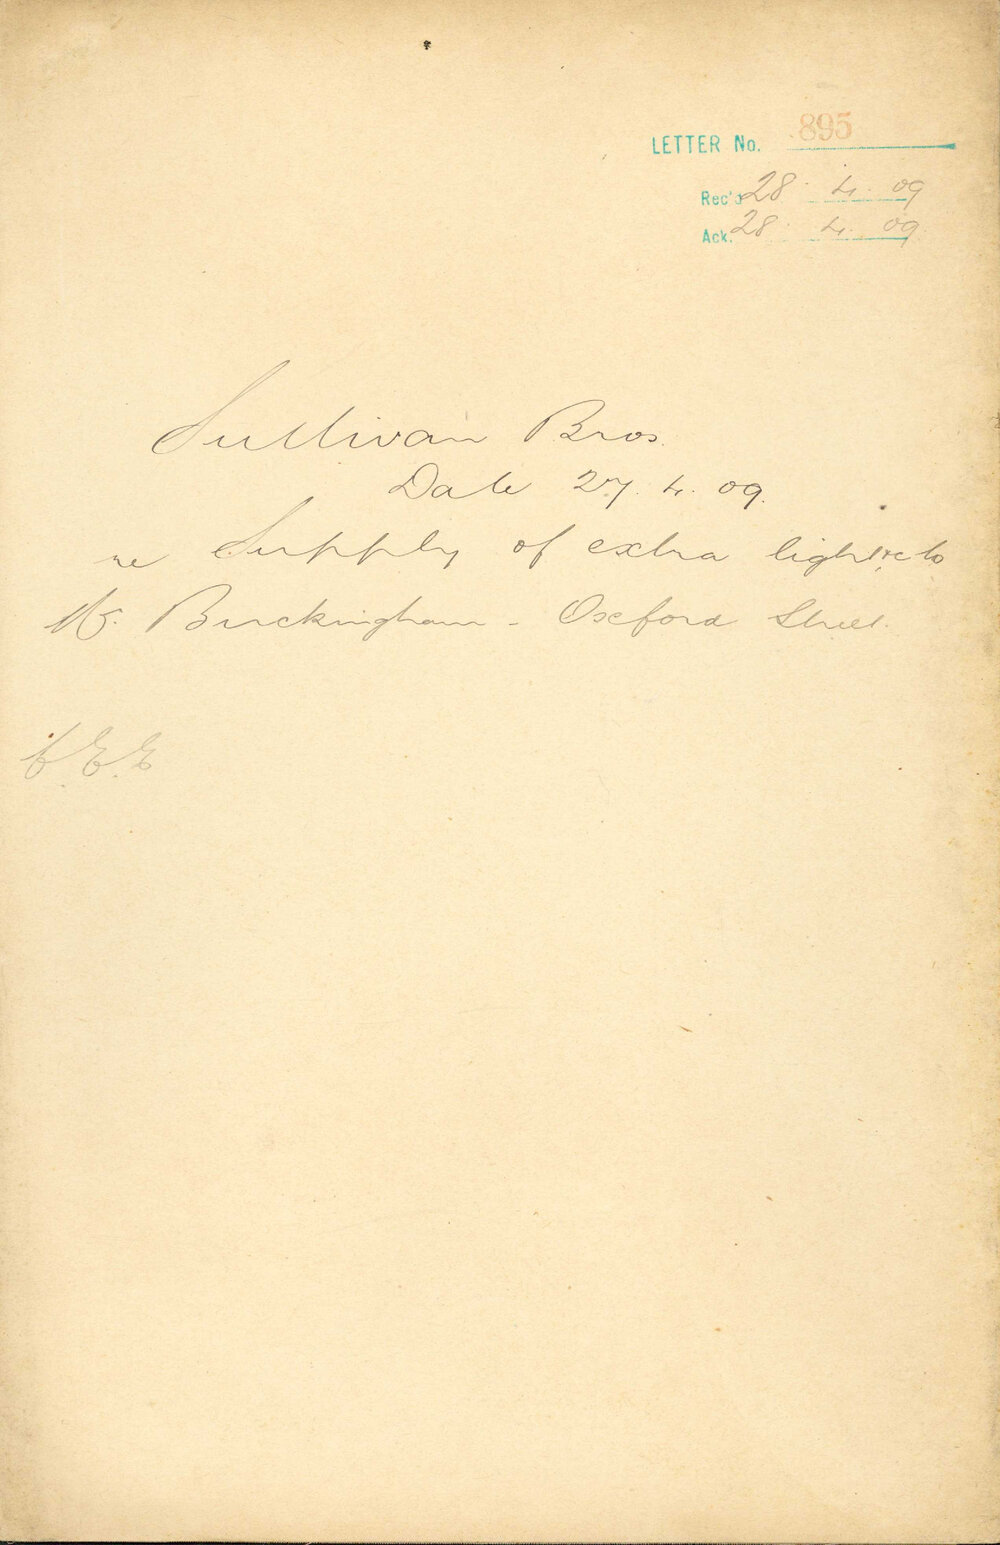 LETTER No. 895
Rec'd 28. 4. 09
Ack. 28. 4. 09
Sullivan Bros.
Date 27. 4. 09.
re Supply of extra light &c to
Mr. Buckingham - Oxford Street.